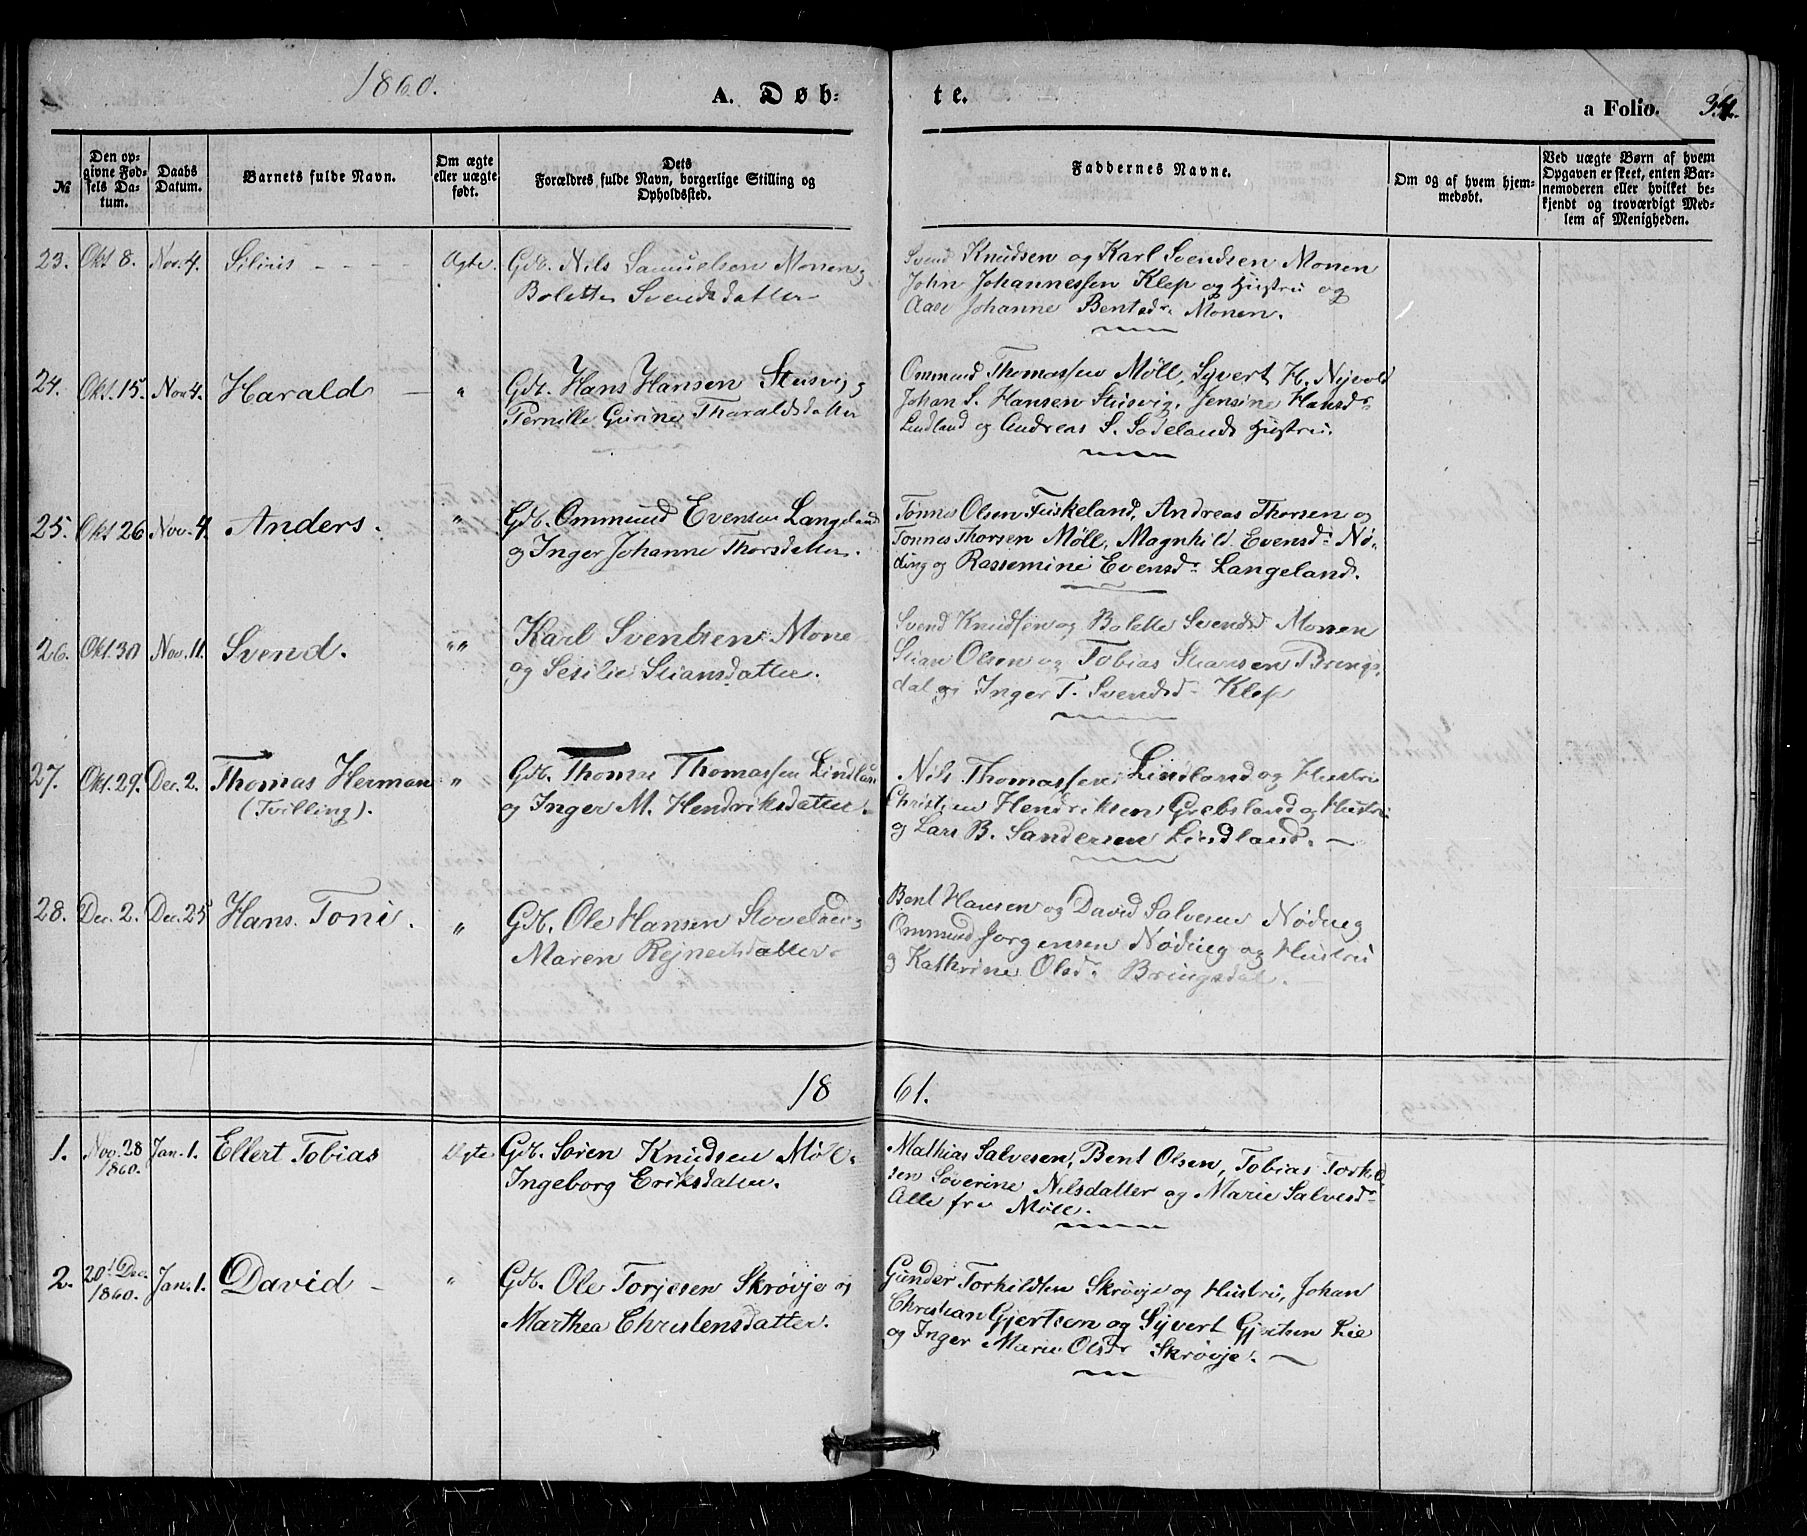 1860.
A. Døb-
te.
a Folio. 34.
№
Den op-
givne Fød-
sels Da-
tum.
Daabs
Datum.
Barnets fulde Navn.
Om ægte
eller uægte
født.
Dets
Forældres fulde Navn, borgerlige Stilling og
Opholdssted.
Faddernes Navne.
Om og af hvem hjem-
medøbt.
Ved uægte Børn af hvem
Opgaven er skeet, enten Bar-
nemoderen eller hvilket be-
kjendt og troværdigt Med-
lem af Menigheden.
23. Okt 8. Nov. 4. Ægte. Gdb. Nils Samuelsen Monen og
Bolette Svendsdatter
Svend Knudsen og Karl Svendsen Monen
John Johannessen Klep og Hustru og
Aase Johanne Bentsdr. Monen.
24. Okt. 15. Nov 4. Harald — „ Gdb. Hans Hansen Stusvig og
Pernille Gurine Tharaldsdatter
Ommund Thomassen Møll, Syvert H. Nyvold
Johan S. Hansen Stusvig, Jensine Hansdr
Lindland og Andreas S. Sodelands Hustru.
25. Okt 26 Nov. 4. Anders. „ Gdb. Ommund Evensen Langeland
og Inger Johanne Thorsdatter.
Tønnes Olsen Fuskeland, Andreas Thorsen og
Tønnes Thorsen Møll, Magnhild Evensdr Nø-
ding og Rassemine Evensdr Langeland.
26. Okt. 30 Nov. 11. Svend. „„ Karl Svendsen Mone
og Sesilie Stiansdatter.
Svend Knudsen og Bolette Svendsd Monen
Stian Olsen og Tobias Stiansen Brings-
dal og Inger T. Svendsd- Klep
27. Okt. 29. Dec. 2. Thomas Herman „ Gdb. Thomas Thomassen Lindland
(Tvilling). og Inger M. Hendriksdatter.
Nils Thomassen Lindland og Hustru
Christen Hendriksen Grebsland og Hustru
og Lars B. Sandersen Lindland. —
28. Dec. 2. Dec. 25 Hans Toni. „ Gdb. Ole Hansen
Maren
Bent Hansen og David Salvesen Nøding
Ommund Jorgensen Nøding og Hustru
og Kathrine Olsdr Bringsdal. —
18 61.
1. Nov. 28 Jan. 1. Ellert Tobias Ægte Gdb. Søren Knudsen Møll.
1860. Ingeborg Eriksdatter.
Mathias Salvesen, Bent Olsen, Tobias Torkild
sen Søverine Nilsdatter og Marie Salvesdr
Alle fra Møll.
2. 16 Dec. 1860. Jan. 1. David — „ Gdb. Ole Torjesen Skrøvje og
Marthea Christensdatter.
Gunder Torkildsen Skrøvje og Hustru, Johan
Christian Gjertsen og Syvert Gjertsen Lie
og Inger Marie Olsdr Skrøvje. —